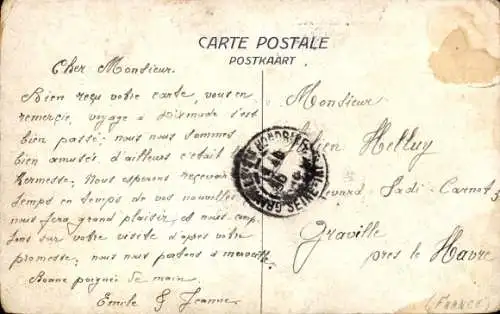 CARTE POSTALE
POSTKAART
Cher Monsieur.
Bien reçu votre carte, vous en
remercie, voyage a Dixmude s'est
bien passé; nous nous sommes
bien amusés, d'ailleurs c'était
kermesse. Nous esperons recevoir
temps en temps de vos nouvelles
nous fera grand plaisir, et nous comp
tons sur votre visite d'après votre
promesse; nous nous portons a merveille.
Bonne poignée de main.
Emile & Jeanne.
Monsieur
Helluy
Sadi-Carnot 5
Graville
pres le Havre
(FRANCE)